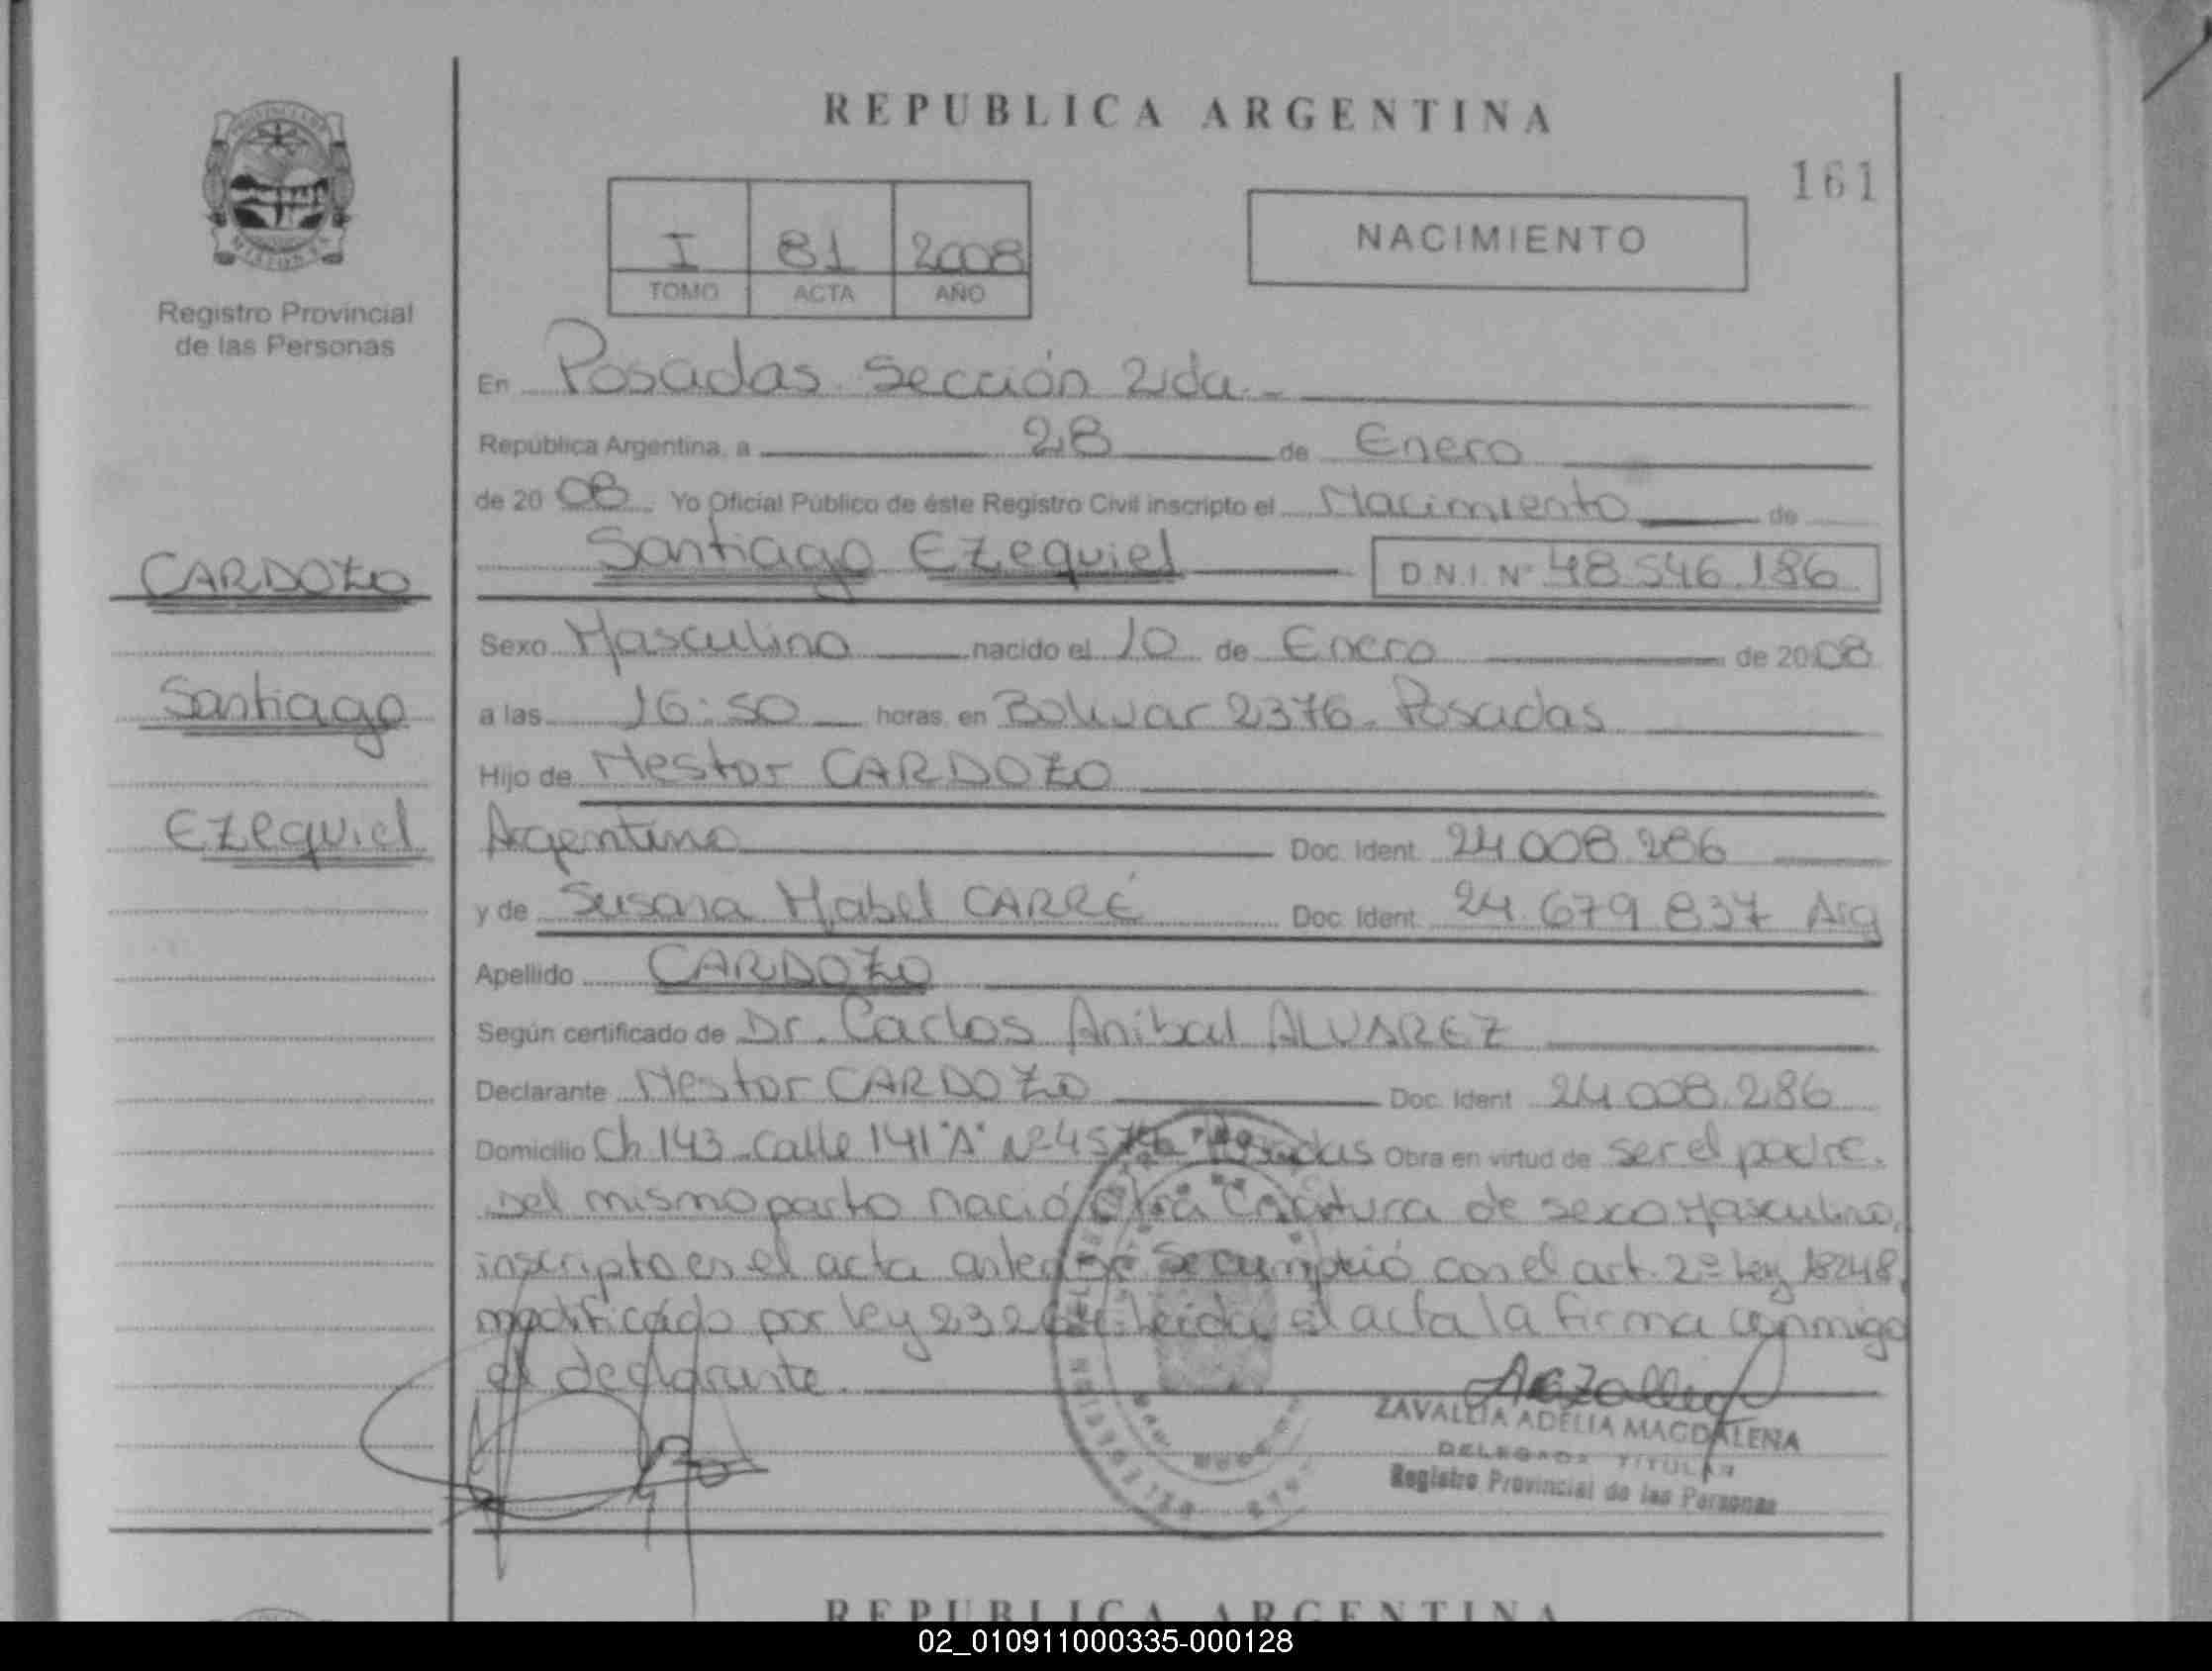 REPUBLICA ARGENTINA
161
I 81 2008
TOMO ACTA AÑO
NACIMIENTO
Registro Provincial
de las Personas
En Posadas Sección 2da.-
República Argentina, a 28 de Enero
de 20 08 Yo Oficial Público de éste Registro Civil inscripto el Nacimiento de
Santiago Ezequiel D.N.I. Nº 48.546.186
CARDOZO
Sexo Masculino nacido el 10 de Enero de 2008
Santiago
a las 16:50 horas, en Bolivar 2376. Posadas
Hijo de Nestor CARDOZO
Ezequiel
Argentino Doc. Ident. 24.008.286
y de Susana Mabel CARRÉ Doc. Ident. 24.679.837 Arg
Apellido CARDOZO
Según certificado de Dr. Carlos Anibal ALVAREZ
Declarante Nestor CARDOZO Doc. Ident. 24.008.286
Domicilio Ch 143 - Calle 141 "A" Nº Posadas Obra en virtud de ser el padre.
Del mismo parto nació otra Criatura de sexo Masculino,
inscripto en el acta anterior Se cumplió con el art. 2º Ley 18248,
modificado por ley 23264. Leída el acta la firma conmigo
el declarante.
ZAVALLIA ADELIA MAGDALENA
DELEGADA TITULAR
Registro Provincial de las Personas
REPUBLICA ARGENTINA
02_010911000335-000128